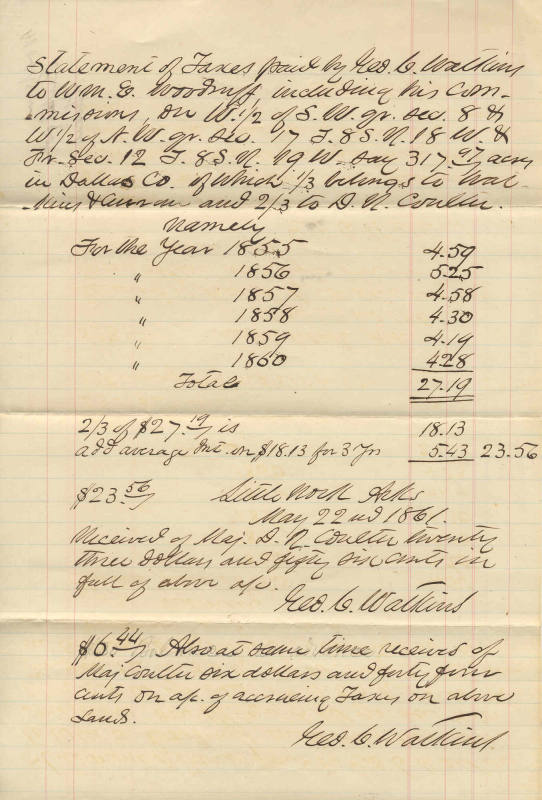 Statement of Taxes paid by Geo. C. Watkins
to Wm. E. Woodruff including his com-
-missions, on W. 1/2 of S. W. qr. sec. 8 &
W 1/2 of N. W. qr. sec. 17 T. 8 S. R. 18 W. &
Fr. Sec. 12 T. 8 S. R. 19 W. say 317.97 acres
in Dallas Co. of which 1/3 belongs to Wat-
-kins & and 2/3 to D. R. Coulter.
Namely
For the Year 1855 4.59
" 1856 5.25
" 1857 4.58
" 1858 4.30
" 1859 4.19
" 1860 4.28
Total 27.19
2/3 of $27.19 is 18.13
add average Int. on $18.13 for 3 Yrs 5.43 23.56
$23.56 Little Rock Arks
May 22nd 1861.
Received of Maj. D. R. Coulter twenty
three dollars and fifty six cents in
full of above a/c.
Geo. C. Watkins
$6.44 Also at same time receives of
Maj Coulter six dollars and forty four
cents on a/c. of accrueing Taxes on above
Lands.
Geo. C. Watkins.